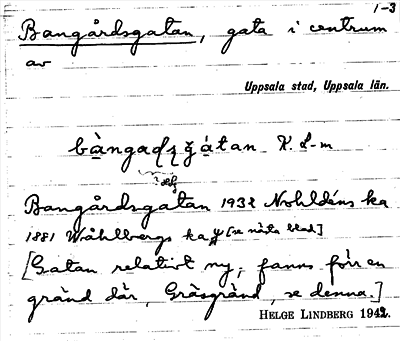 1-3
Bangårdsgatan, gata i centrum
av
Uppsala stad, Uppsala län.
Bangårdsgatan 1932 Nohldéns ka
1881 Wåhlbergs ka [se nästa blad]
[Gatan relativt ny; fanns förr en
gränd där, Gräsgränd, se denna.]
HELGE LINDBERG 1942.